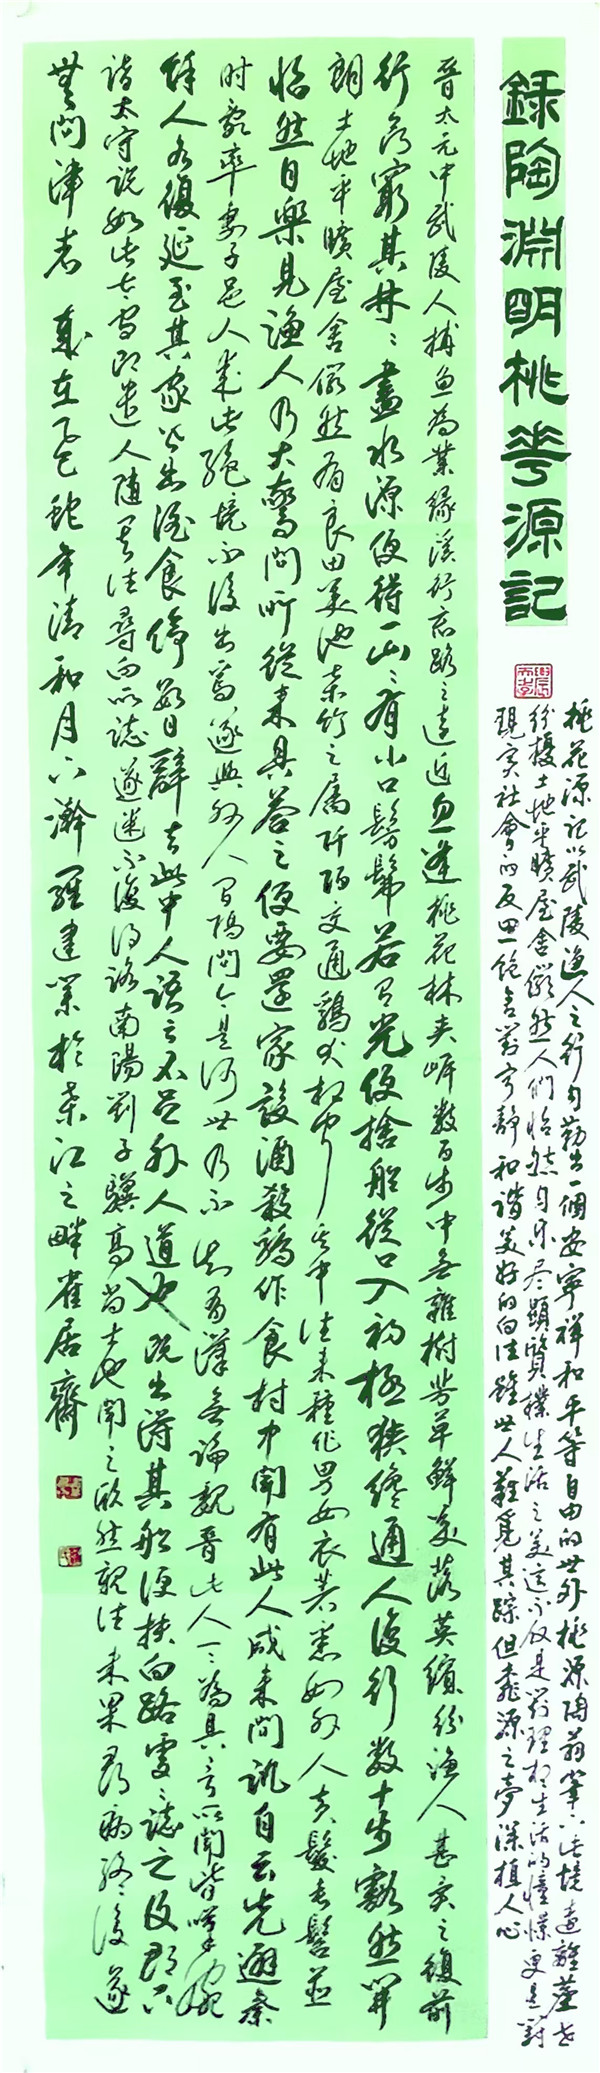 録陶淵明桃花源記
桃花源記以武陵漁人之行勾勒出一個安寧祥和平等自由的世外桃源陶翁筆下此境遠離塵世
紛擾土地平曠屋舍儼然人們怡然自乐尽顯質樸生活之美這不仅是對理想生活的憧憬更是對
現实社會的反思飽含對宁静和谐美好的向往雖世人難覓其踪但桃源之夢深植人心
晋太元中武陵人捕魚為業緣溪行忘路之遠近忽逢桃花林夹岸数百步中无雜樹芳草鲜美落英繽纷漁人甚異之復前
行欲窮其林々盡水源便得一山々有小口髣髴若有光便捨船從口入初極狹纔通人復行数十步豁然開
朗土地平曠屋舍儼然有良田美池桑竹之属阡陌交通鷄犬相聞其中往来種作男女衣著悉如外人黄髮垂髫並
怡然自樂見漁人乃大驚問所從来具答之便要還家設酒殺鷄作食村中聞有此人咸来問訊自云先避秦
时亂率妻子邑人来此絶境不復出焉遂與外人間隔問今是何世乃不知有漢無論魏晋此人一一為具言所聞皆嘆惋
餘人各復延至其家皆出酒食停数日辭去此中人語云不足外人道也既出得其船便扶向路處々誌之及郡下
詣太守说如此太守即遣人隨其往尋向所誌遂迷不復得路南陽劉子驥高尚士也聞之欣然親往未果尋病终後遂
無問津者 歲在乙巳蛇年清和月下瀚羅建業於